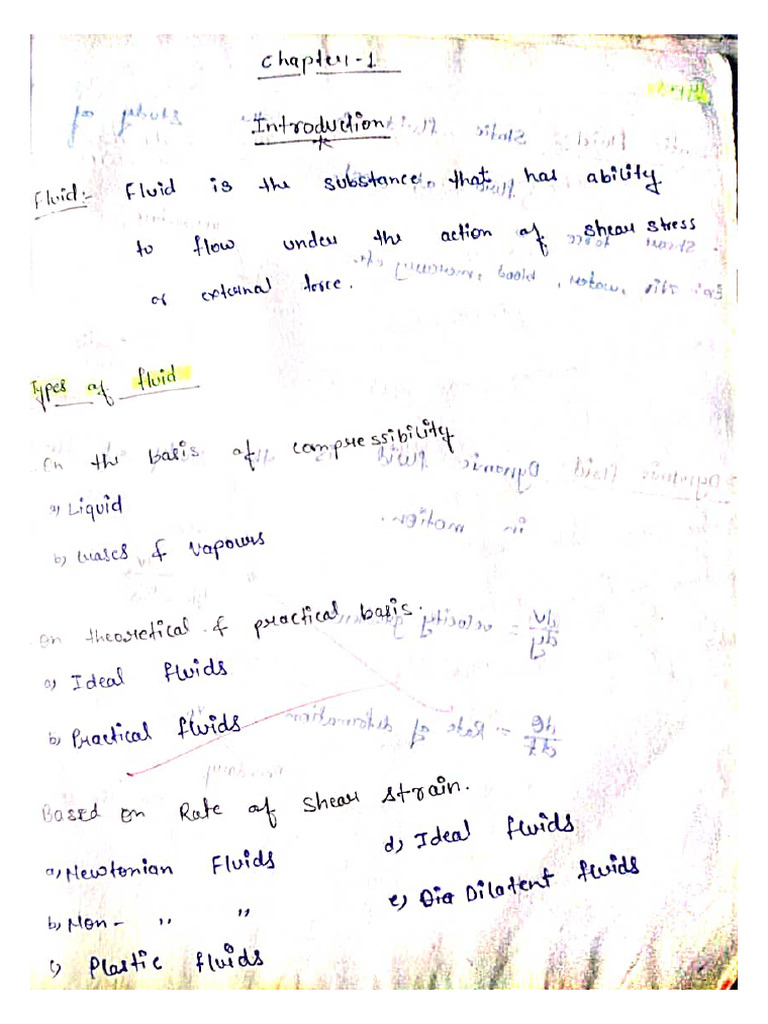 Chapter-1
Introduction
Fluid:- Fluid is the substance that has ability
to flow under the action of shear stress
or external force.
Types of fluid
On the basis of compressibility
a) Liquid
b) Gases & vapours
On theoretical & practical basis.
a) Ideal fluids
b) Practical fluids
Based on Rate of Shear strain.
a) Newtonian Fluids
b) Non- " "
c) Plastic fluids
d) Ideal fluids
e) Dilatent fluids